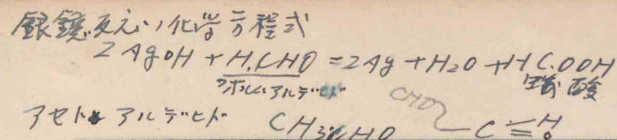 銀鏡反応ノ化学方程式
2AgOH + H.CHO = 2Ag + H2O + H C.OOH
ホルムアルデヒド 蟻酸
アセトアルデヒド CH3CHO CHO C H O